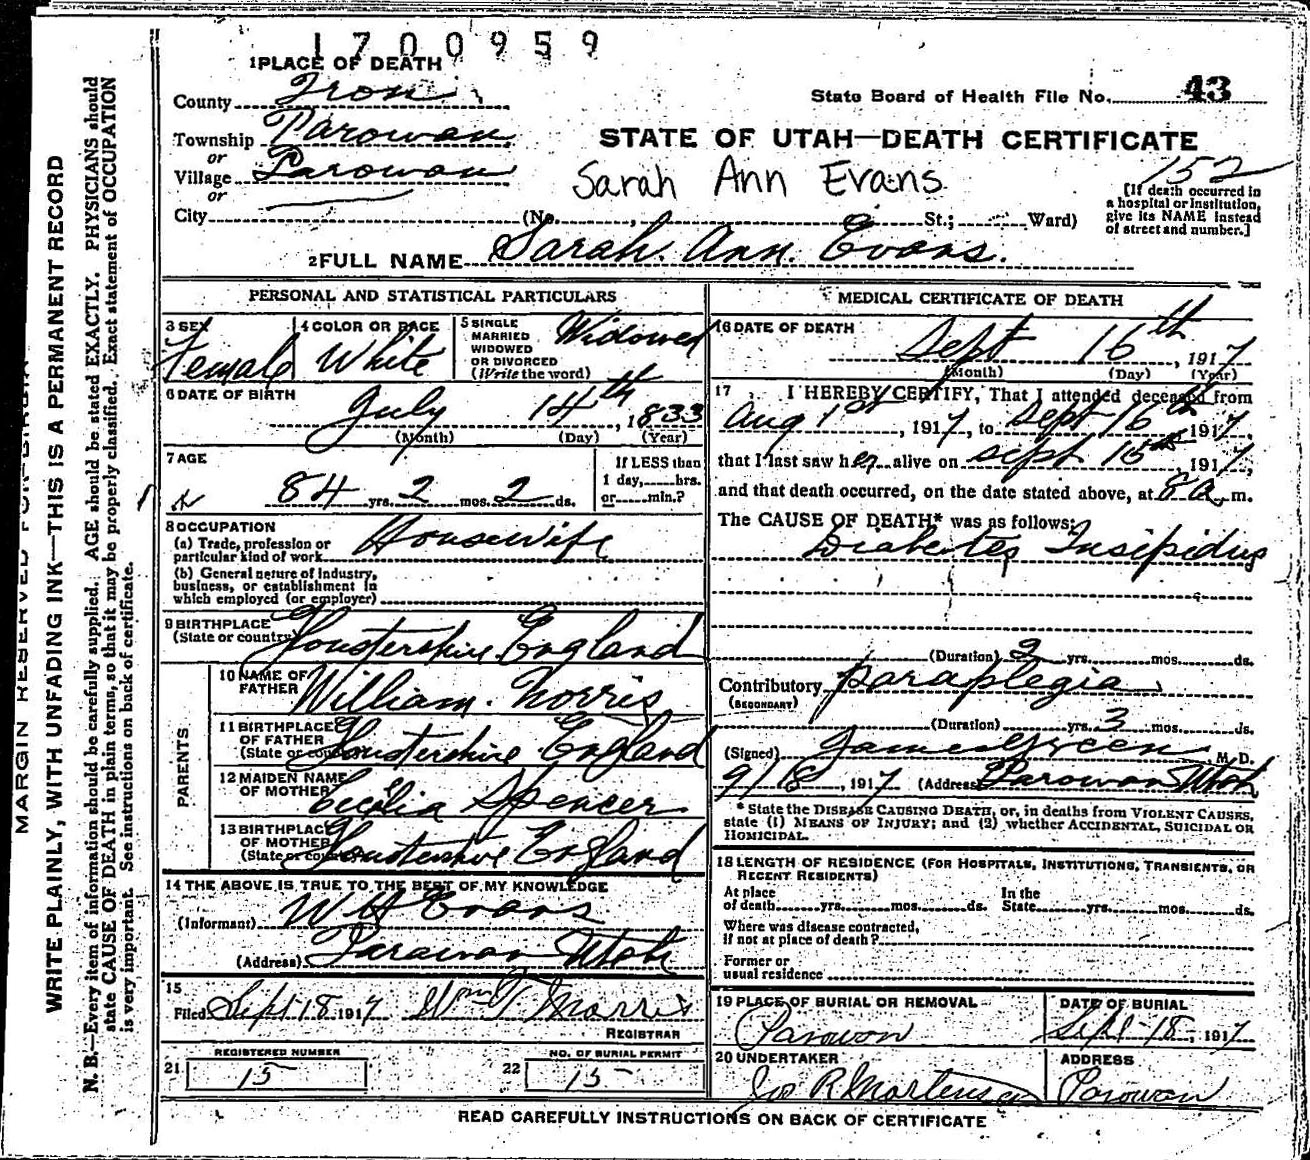 1700959
1 PLACE OF DEATH
County Iron
State Board of Health File No. 43
Township Parowan
STATE OF UTAH—DEATH CERTIFICATE
or
Village Parowan
Sarah Ann Evans
152
or
[If death occurred in
a hospital or institution,
give its NAME instead
of street and number.]
City (No. St.; Ward)
2 FULL NAME Sarah. Ann. Evans.
PERSONAL AND STATISTICAL PARTICULARS
3 SEX
Female
4 COLOR OR RACE
White
5 SINGLE
MARRIED
WIDOWED
OR DIVORCED
(Write the word)
Widowed
6 DATE OF BIRTH
July 14th, 1833
(Month) (Day) (Year)
7 AGE
84 yrs. 2 mos. 2 ds.
If LESS than
1 day, hrs.
or min.?
8 OCCUPATION
(a) Trade, profession or
particular kind of work Housewife
(b) General nature of Industry,
business, or establishment in
which employed (or employer)
9 BIRTHPLACE
(State or country) Gloustershire England
PARENTS
10 NAME OF
FATHER William. Norris
11 BIRTHPLACE
OF FATHER
(State or country) Gloustershire England
12 MAIDEN NAME
OF MOTHER Cecilia Spencer
13 BIRTHPLACE
OF MOTHER
(State or country) Gloustershire England
14 THE ABOVE IS TRUE TO THE BEST OF MY KNOWLEDGE
(Informant) W H Evans
(Address) Parowan Utah
15
Filed Sept 18 1917 Wm T Morris
REGISTRAR
REGISTERED NUMBER
21 15
NO. OF BURIAL PERMIT
22 15
MEDICAL CERTIFICATE OF DEATH
16 DATE OF DEATH
Sept 16th, 1917
(Month) (Day) (Year)
17 I HEREBY CERTIFY, That I attended deceased from
Aug 1st, 1917, to Sept 16th, 1917,
that I last saw her alive on Sept 15th, 1917,
and that death occurred, on the date stated above, at 8 a m.
The CAUSE OF DEATH* was as follows:
Diabetes Insipidus
(Duration) 2 yrs. mos. ds.
Contributory Paraplegia
(SECONDARY)
(Duration) yrs. 3 mos. ds.
(Signed) James Green M. D.
9/18, 1917 (Address) Parowan Utah
* State the DISEASE CAUSING DEATH, or, in deaths from VIOLENT CAUSES,
state (1) MEANS OF INJURY; and (2) whether ACCIDENTAL, SUICIDAL OR
HOMICIDAL.
18 LENGTH OF RESIDENCE (FOR HOSPITALS, INSTITUTIONS, TRANSIENTS, OR
RECENT RESIDENTS)
At place
of death yrs. mos. ds.
In the
State yrs. mos. ds.
Where was disease contracted,
if not at place of death?
Former or
usual residence
19 PLACE OF BURIAL OR REMOVAL
Parowan
DATE OF BURIAL
Sept-18-, 1917
20 UNDERTAKER
Jos R Mortensen
ADDRESS
Parowan
READ CAREFULLY INSTRUCTIONS ON BACK OF CERTIFICATE
MARGIN RESERVED FOR
WRITE PLAINLY, WITH UNFADING INK—THIS IS A PERMANENT RECORD
N. B.—Every item of information should be carefully supplied. AGE should be stated EXACTLY. PHYSICIANS should
state CAUSE OF DEATH in plain terms, so that it may be properly classified. Exact statement of OCCUPATION
is very important. See instructions on back of certificate.